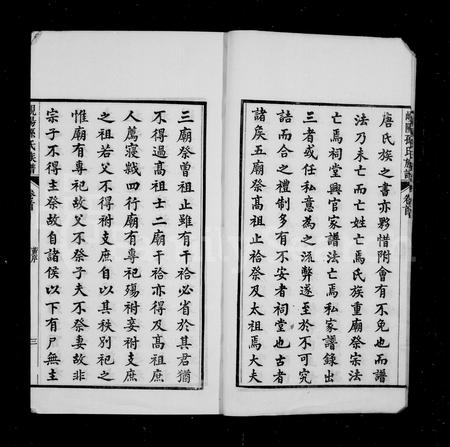 唐氏族之書亦夥惜附會有不免也而譜
法乃未亡而亡姓亡焉氏族重廟祭宗法
亡焉祠堂興官家譜法亡焉私家譜錄出
三者或任私意為之流弊遂至於不可究
詰而合之禮制多有不安者祠堂也古者
諸矦五廟祭髙祖止祫祭及太祖焉大夫
三廟祭曾祖止雖有干祫必省於其君猶
不得過髙祖士二廟干祫亦得及髙祖庶
人薦寢戠四行廟有專祀殤祔妾祔支庶
之祖若父不得祔支庶自以其秩別祀之
惟廟有專祀故父不祭子夫不祭妻故非
宗子不得主祭故自諸侯以下有尸無主
峴陽孫氏族譜
卷首
三